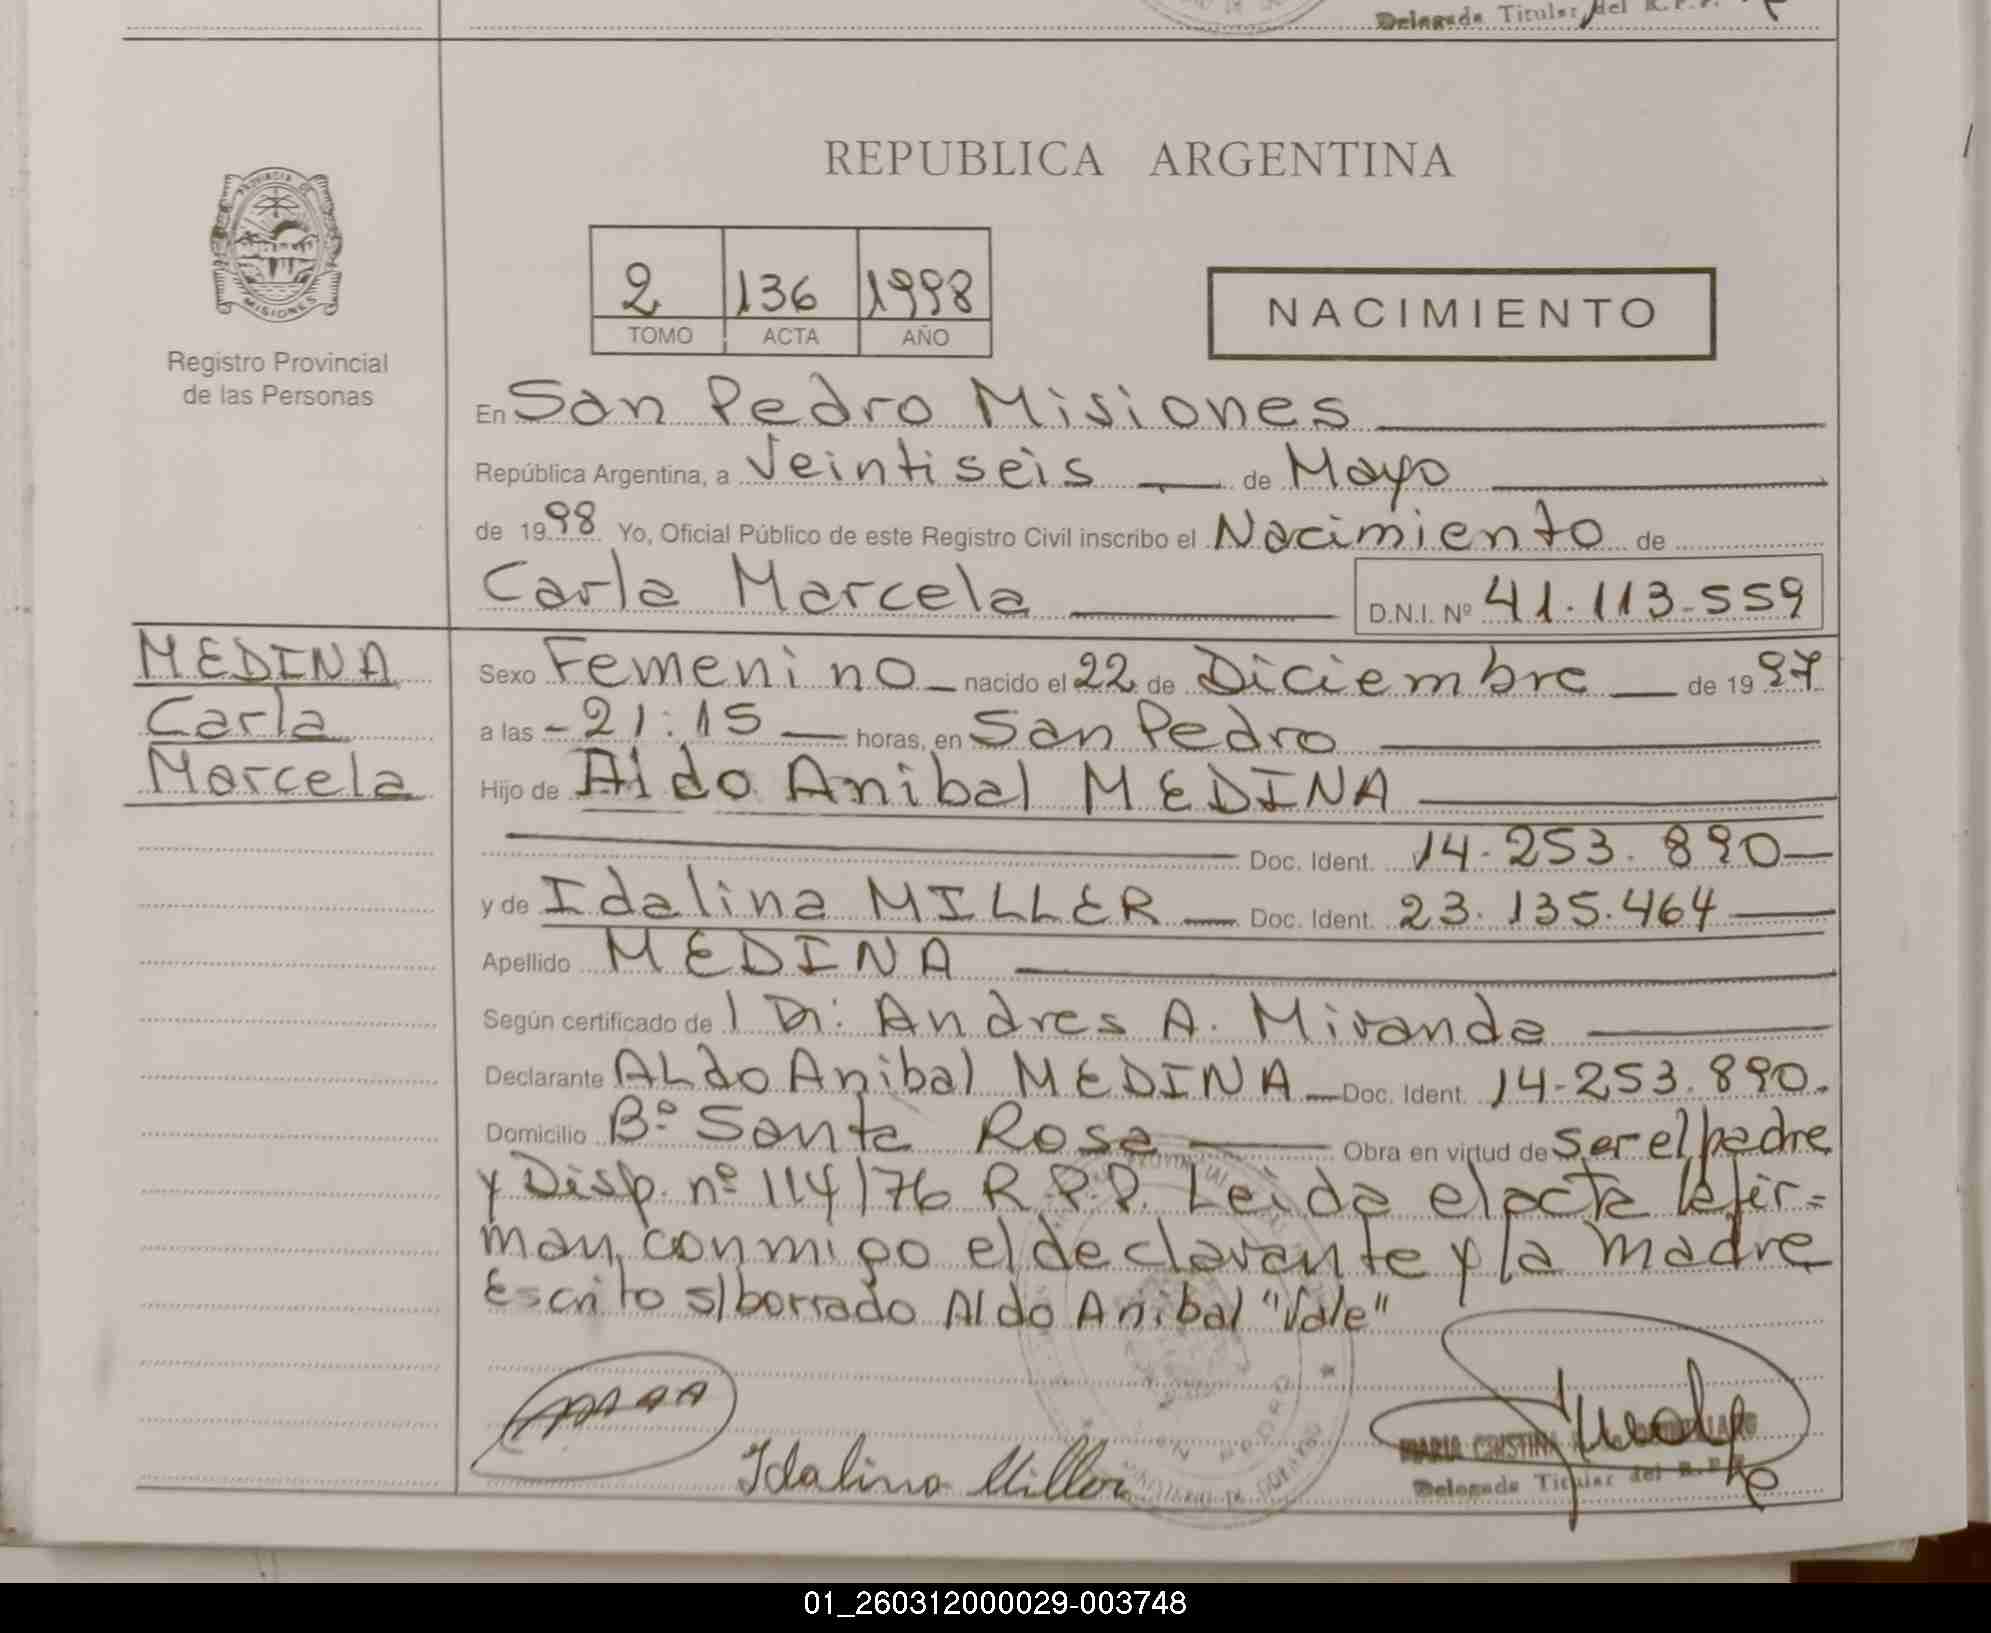 Delegada Titular del R.P.P.
REPUBLICA ARGENTINA
PROVINCIA DE
MISIONES
Registro Provincial
de las Personas
2 136 1998
TOMO ACTA AÑO
NACIMIENTO
En San Pedro Misiones
República Argentina, a Veintiseis de Mayo
de 1998 Yo, Oficial Público de este Registro Civil inscribo el Nacimiento de
Carla Marcela D.N.I. Nº 41.113.559
MEDINA
Carla
Marcela
Sexo Femenino nacido el 22 de Diciembre de 1997
a las 21:15 horas, en San Pedro
Hijo de Aldo Anibal MEDINA
Doc. Ident. 14.253.890
y de Idalina MILLER Doc. Ident. 23.135.464
Apellido MEDINA
Según certificado de l Dr: Andres A. Miranda
Declarante ALdo Anibal MEDINA Doc. Ident. 14.253.890.
Domicilio Bº Santa Rosa Obra en virtud de ser el padre
y Disp. nº 114/76 R.P.P. Leida el acta la fir=
man conmigo el declarante y la madre
Escrito s/borrado Aldo Anibal "Vale"
Idalina Miller
MARIA CRISTINA
Delegada Titular del R.P.P.
01_260312000029-003748